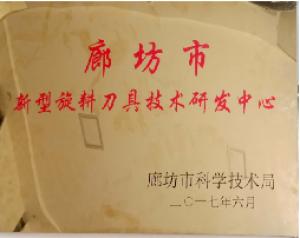 廊坊市
新型旋耕刀具技术研发中心
廊坊市科学技术局
二〇一七年六月